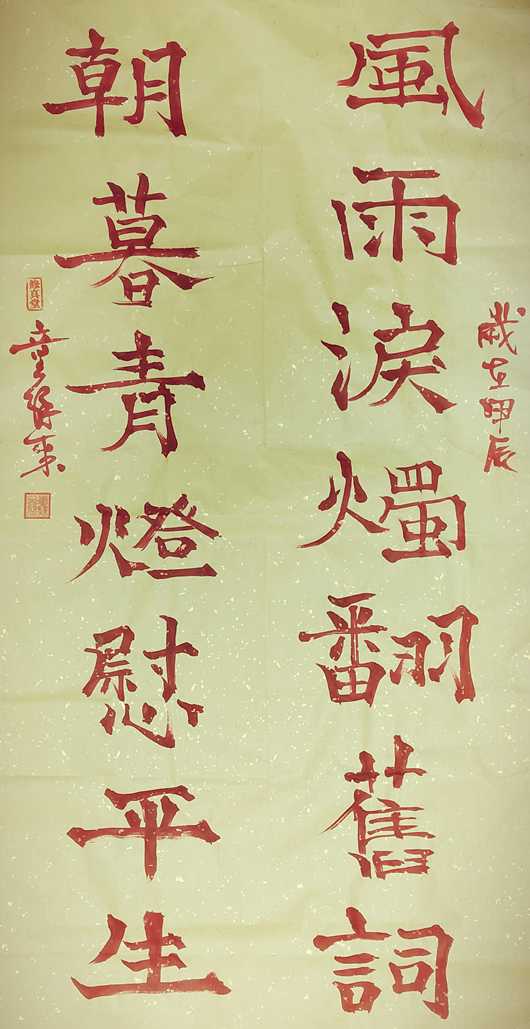 歲在甲辰
風雨淚燭翻舊詞
朝暮青燈慰平生